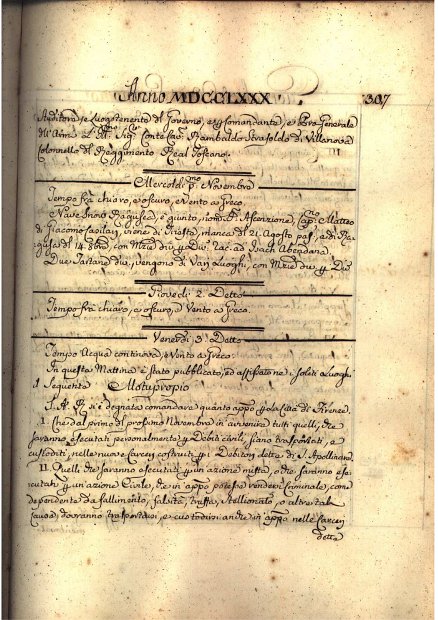 Anno MDCCLXXX
307
Auditore, e Luogotenente del Governo, e Comandante, e Generale
dell'Armi L'Ill. Sig. Conte Cav. Rambaldo Strasoldo di Villanova
Colonnello del Reggimento Real Toscano.
Mercoldì p.mo Novembre
Tempo fra chiaro, e oscuro, e Vento a Greco.
Nave Ragusea, è giunto, nom. L'Ascenzione, Cap.no Matteo
di Giacomo viene di Trieste, manca del 21. Agosto pas.o, e di Ra-
gusa del 14. con Mrzie Isach
Due Tartane vengono di Luoghi, con Mrzie
Giovedì 2. Detto
Tempo fra chiaro, e oscuro, e Vento a Greco.
Venerdì 3. Detto
Tempo Acqua continova, e Vento a Greco.
In questa Mattina è stato pubblicato, ed affissato ne i soliti Luoghi
il Seguente Motuproprio
S. A. R. si è degnata comandare quanto app.o p. la Città di Firenze
I. Che dal primo del prossimo Novembre in avvenire tutti quelli, che
saranno esecutati personalmente p. Debiti civili, siano trasportati, e
custoditi, nelle nuove Carceri costruite p. i Debitori dette di S. Apollinare.
II. Quelli che saranno esecutati p. un azione mista, o che saranno ese-
cutati p. un azione Civile, che in app.o potesse rendersi Criminale, come
dependente da fallimento, falsità, truffa, Stellionato, o altre tali
cause dovranno trasportarsi, e custodirsi anche in app.o nelle Carceri
dette